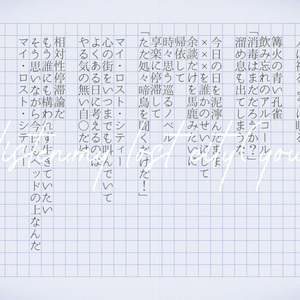 篝火の青い孔雀
飲み忘れのアルコール
「消毒はまだだろうか?」
溜め息も出てしまうな
今日の日を泥濘んまんま
×××を誰かのせいにして
余談だけを馬鹿みたいに
帰依して
時々思う 巡るノベル
享楽に停滞して
「ただ処々啼鳥を聞くだけだ!」
マイ・ロスト・シティー
心の街をいつまでも叫んでいて
よくある日に考えるのは
やる気の無い自〇だけ
相対性停滞論だ
もう誰にも構わず生きていたい
そう思いながら今もベッドの上なんだ
マイ・ロスト・シティー
my lost city